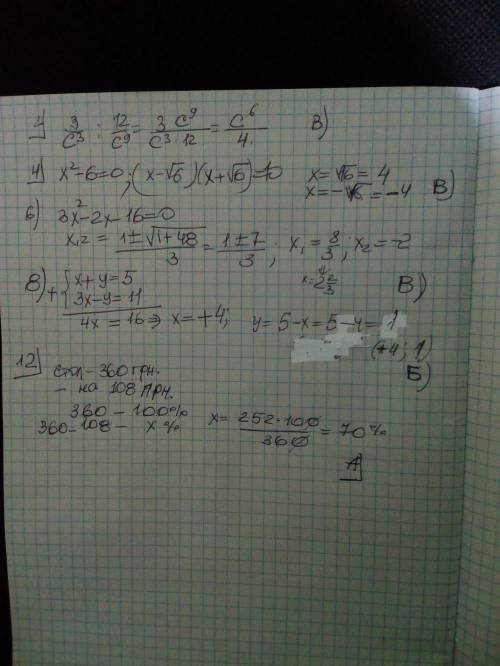 1) 3/c³ : 12/c⁹ = 3 c⁹/c³·12 = c⁶/4. В)
4) x²-6=0; (x-√6)(x+√6)=10 x=√6=4
x=-√6=-4 В)
6) 3x²-2x-16=0
x₁,₂ = 1±√1+48/3 = 1±7/3; x₁=8/3; x₂=-2
x=2 2/3 В)
8) + { x+y=5
3x-y=11
4x=16⇒ x=+4; y=5-x=5-4=1
(+4; 1)
Б)
12) стіл-360грн.
- на 108 грн.
360-100%
360-108- x% x= 252·100/360 = 70%
А